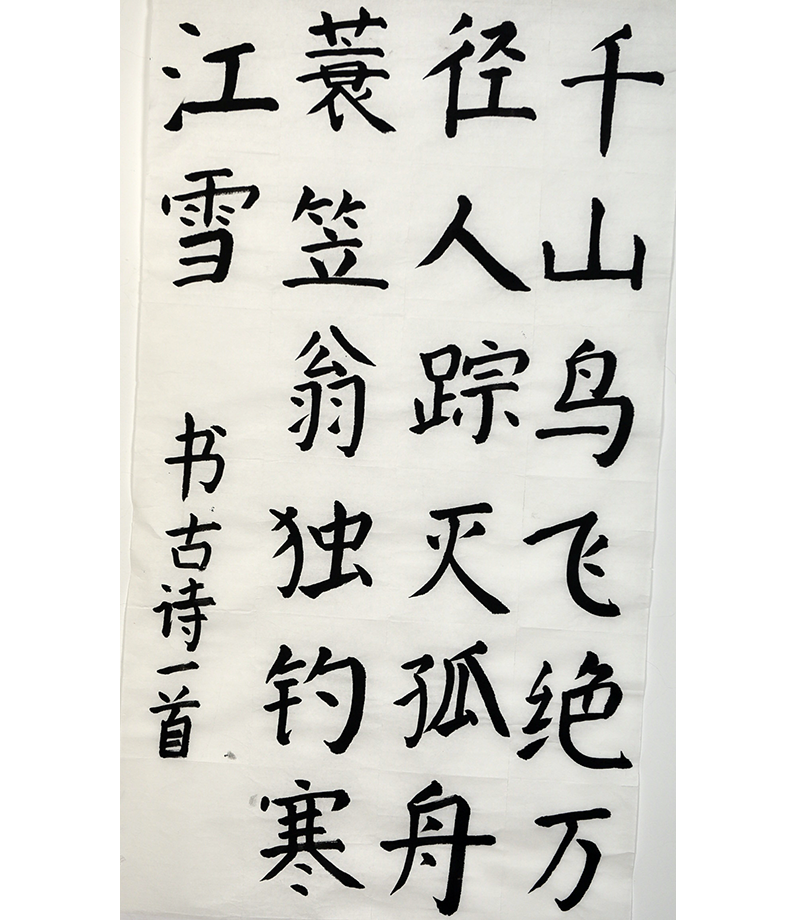 千山鸟飞绝万
径人踪灭孤舟
蓑笠翁独钓寒
江雪
书古诗一首